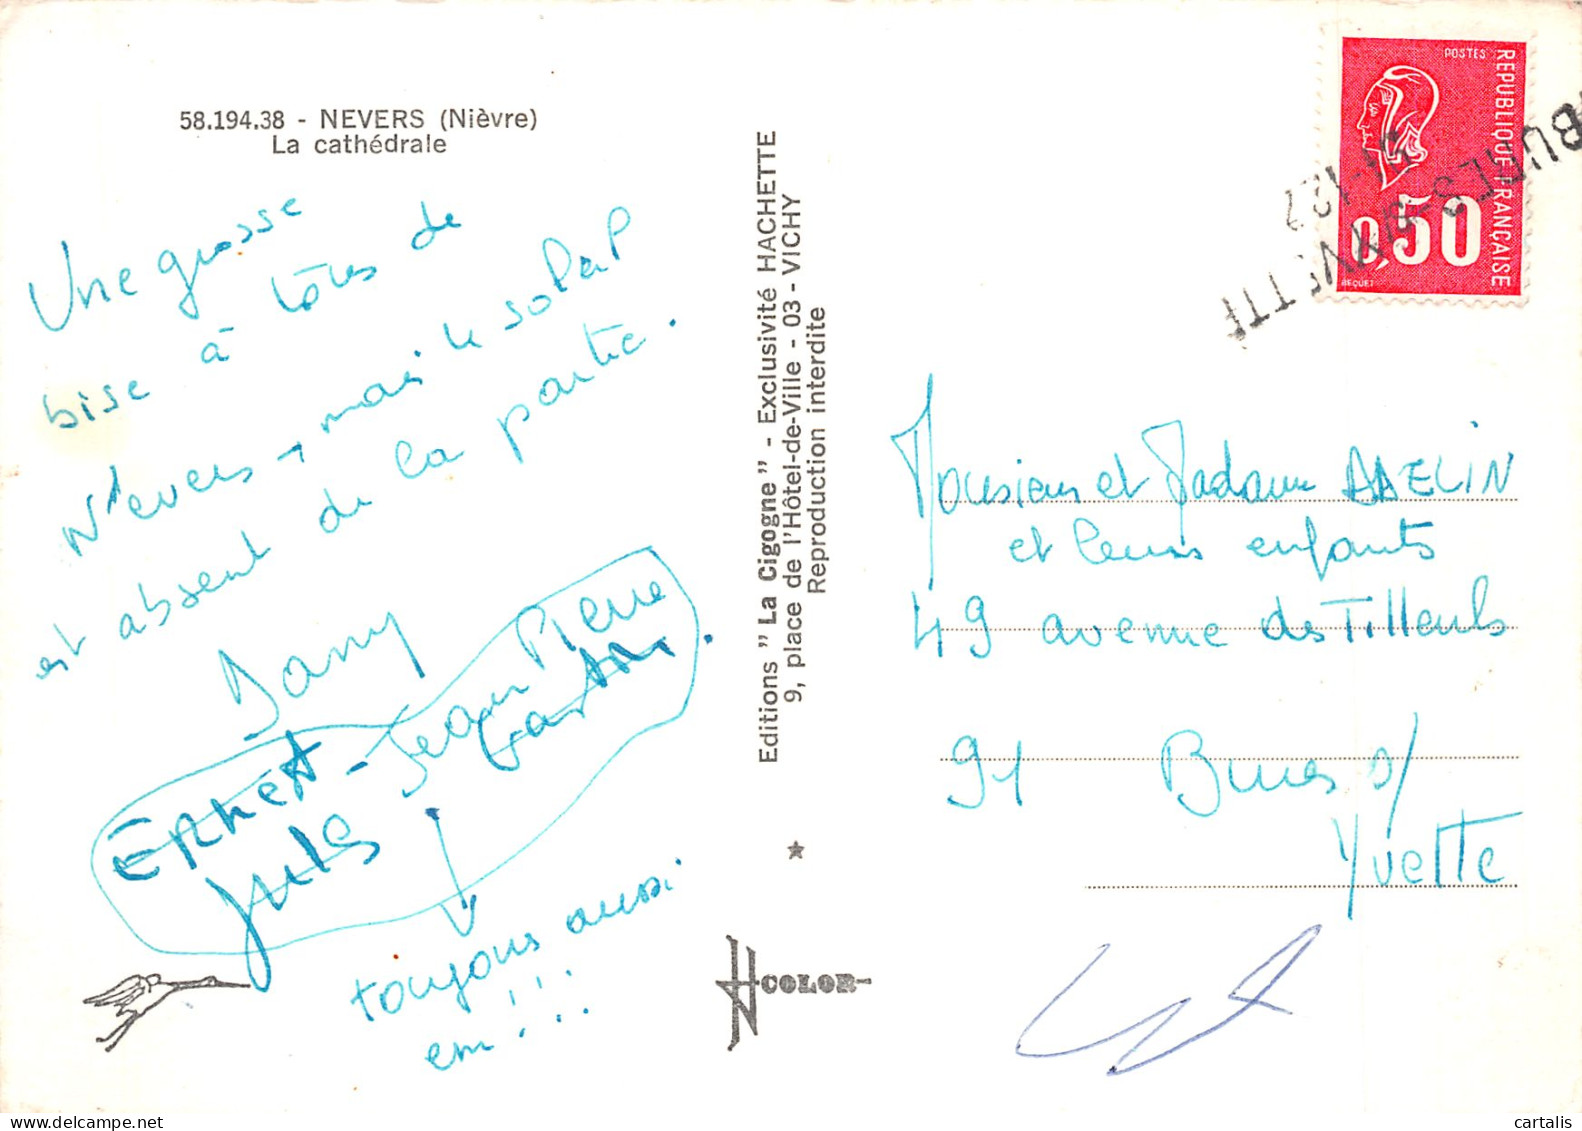 58.194.38 - NEVERS (Nièvre)
La cathédrale
Une grosse
bise à tous de
N'evers, mais le soleil
est absent de la partie.
Dany
ERNEST - Jean Pierre
Jules Gaston.
toujours aussi
em!!!
Editions "La Cigogne" - Exclusivité HACHETTE
9, place de l'Hôtel-de-Ville - 03 - VICHY
Reproduction interdite
COLOR
POSTES
REPUBLIQUE FRANÇAISE
0,50
BEQUET
BURES-S/YVETTE
Monsieur et Madame
et leurs enfants
49 avenue des Tilleuls
91 Bures s/
Yvette
cartalis